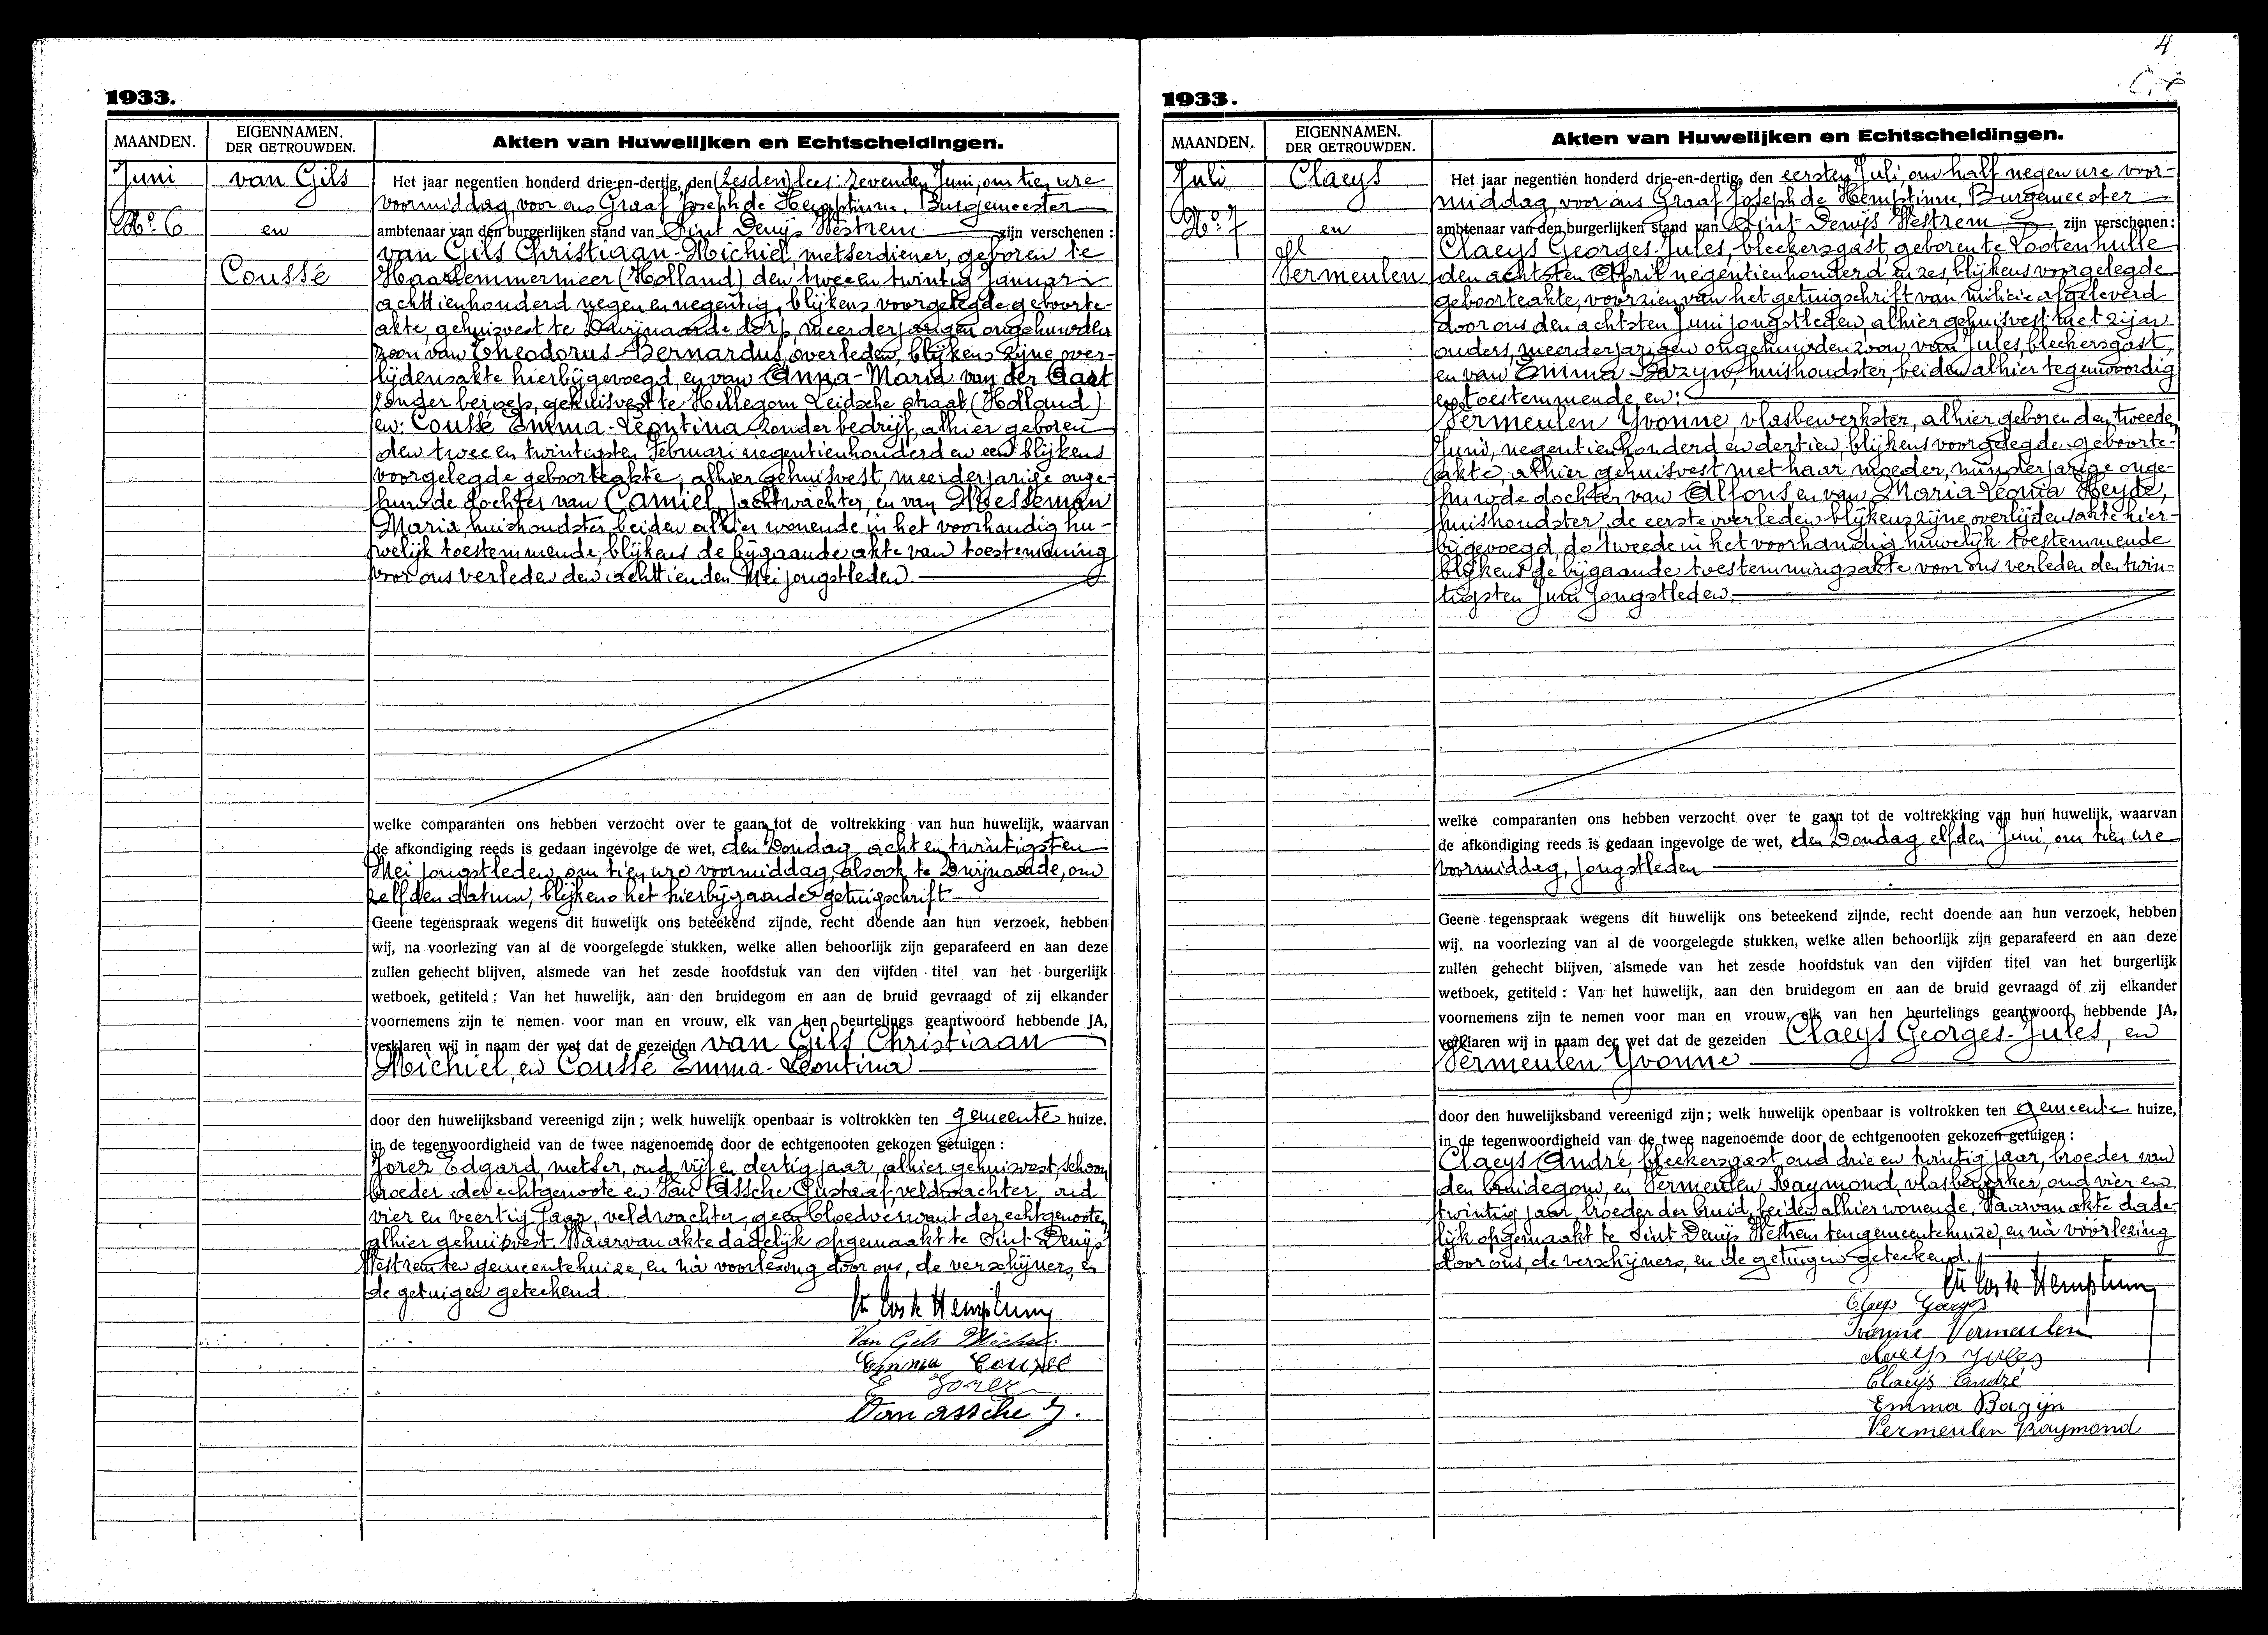 1933.
MAANDEN.
EIGENNAMEN.
DER GETROUWDEN.
Akten van Huwelijken en Echtscheidingen.
Juni
No 6
van Gils
en
Coussé
Het jaar negentien honderd drie-en-dertig, den (zesden) lees: zevenden Juni, om tien ure
voormiddag, voor ons Graaf Joseph de Hemptinne, Burgemeester
ambtenaar van den burgerlijken stand van Sint Denijs Westrem zijn verschenen:
van Gils Christiaan-Michiel, metserdiener, geboren te
Haarlemmermeer (Holland) den twee en twintig Januari
achttienhonderd negen en negentig, blijkens voorgelegde geboorte-
akte, gehuisvest te Zwijnaarde dorp, meerderjarigen ongehuwden
zoon van Theodorus-Bernardus, overleden, blijkens zijne over-
lijdensakte hierbijgevoegd, en van Anna-Maria van der Aart
zonder beroep, gehuisvest te Hillegom Leidsche straat (Holland)
en: Coussé Emma-Leontina, zonder bedrijf, alhier geboren
den twee en twintigsten Februari negentienhonderd en een blijkens
voorgelegde geboorteakte, alhier gehuisvest, meerderjarige onge-
huwde dochter van Camiel, jachtwachter, en van Moesseman
Maria, huishoudster, beiden alhier wonende in het voorhandig hu-
welijk toestemmende, blijkens de bijgaande akte van toestemming
voor ons verleden den achttienden Mei jongstleden.
welke comparanten ons hebben verzocht over te gaan tot de voltrekking van hun huwelijk, waarvan
de afkondiging reeds is gedaan ingevolge de wet, den Zondag acht en twintigsten
Mei jongstleden, om tien ure voormiddag, alsook te Zwijnaarde, om
zelfden datum, blijkens het hierbijgaande getuigschrift
Geene tegenspraak wegens dit huwelijk ons beteekend zijnde, recht doende aan hun verzoek, hebben
wij, na voorlezing van al de voorgelegde stukken, welke allen behoorlijk zijn geparafeerd en aan deze
zullen gehecht blijven, alsmede van het zesde hoofdstuk van den vijfden titel van het burgerlijk
wetboek, getiteld: Van het huwelijk, aan den bruidegom en aan de bruid gevraagd of zij elkander
voornemens zijn te nemen voor man en vrouw, elk van hen beurtelings geantwoord hebbende JA,
verklaren wij in naam der wet dat de gezeiden van Gils Christiaan
Michiel, en Coussé Emma-Leontina
door den huwelijksband vereenigd zijn; welk huwelijk openbaar is voltrokken ten gemeente huize,
in de tegenwoordigheid van de twee nagenoemde door de echtgenooten gekozen getuigen:
Jorez Edgard, metser, oud vijf en dertig jaar, alhier gehuisvest, schoon
broeder der echtgenoote en Van Assche Gustaaf, veldwachter, oud
vier en veertig jaar, veldwachter, geen bloedverwant der echtgenooten,
alhier gehuisvest. Waarvan akte dadelijk opgemaakt te Sint Denijs
Westrem ten gemeentehuize, en nà voorlezing door ons, de verschijners, en
de getuigen geteekend.
Van Gils Michel
Emma Coussé
E Jorez
Van assche G.
4
1933.
MAANDEN.
EIGENNAMEN.
DER GETROUWDEN.
Akten van Huwelijken en Echtscheidingen.
Juli
No 7
Claeys
en
Vermeulen
Het jaar negentien honderd drie-en-dertig, den eersten Juli, om half negen ure voor-
middag, voor ons Graaf Joseph de Hemptinne, Burgemeester
ambtenaar van den burgerlijken stand van Sint Denijs Westrem zijn verschenen:
Claeys Georges-Jules, bleekersgast, geboren te Lootenhulle
den achtsten April negentienhonderd en zes, blijkens voorgelegde
geboorteakte, voorzien van het getuigschrift van milicie afgeleverd
door ons den achtsten Juni jongstleden, alhier gehuisvest met zijn
ouders, meerderjarigen ongehuwden zoon van Jules, bleekersgast,
en van Emma Bazyn, huishoudster, beiden alhier tegenwoordig
en toestemmende, en:
Vermeulen Yvonne, vlasbewerkster, alhier geboren den tweeden
Juni, negentienhonderd en dertien, blijkens voorgelegde geboorte-
akte, alhier gehuisvest met haar moeder, minderjarige onge-
huwde dochter van Alfons en van Maria-Leonia Heyde,
huishoudster, de eerste overleden blijkens zijne overlijdensakte hier-
bijgevoegd, de tweede in het voorhandig huwelijk toestemmende
blijkens de bijgaande toestemmingsakte voor ons verleden den twin-
tigsten Juni jongstleden.
welke comparanten ons hebben verzocht over te gaan tot de voltrekking van hun huwelijk, waarvan
de afkondiging reeds is gedaan ingevolge de wet, den Zondag elfden Juni, om tien ure
voormiddag, jongstleden
Geene tegenspraak wegens dit huwelijk ons beteekend zijnde, recht doende aan hun verzoek, hebben
wij, na voorlezing van al de voorgelegde stukken, welke allen behoorlijk zijn geparafeerd en aan deze
zullen gehecht blijven, alsmede van het zesde hoofdstuk van den vijfden titel van het burgerlijk
wetboek, getiteld: Van het huwelijk, aan den bruidegom en aan de bruid gevraagd of zij elkander
voornemens zijn te nemen voor man en vrouw, elk van hen beurtelings geantwoord hebbende JA,
verklaren wij in naam der wet dat de gezeiden Claeys Georges-Jules, en
Vermeulen Yvonne
door den huwelijksband vereenigd zijn; welk huwelijk openbaar is voltrokken ten gemeente huize,
in de tegenwoordigheid van de twee nagenoemde door de echtgenooten gekozen getuigen:
Claeys André, bleekersgast, oud drie en twintig jaar, broeder van
den bruidegom, en Vermeulen Raymond, vlasbewerker, oud vier en
twintig jaar, broeder der bruid, beiden alhier wonende. Waarvan akte dade-
lijk opgemaakt te Sint Denijs Westrem ten gemeentehuize, en nà voorlezing
door ons, de verschijners, en de getuigen geteekend.
Claeys Georges
Yvonne Vermeulen
Claeys Jules
Claeys André
Emma Bazijn
Vermeulen Raymond